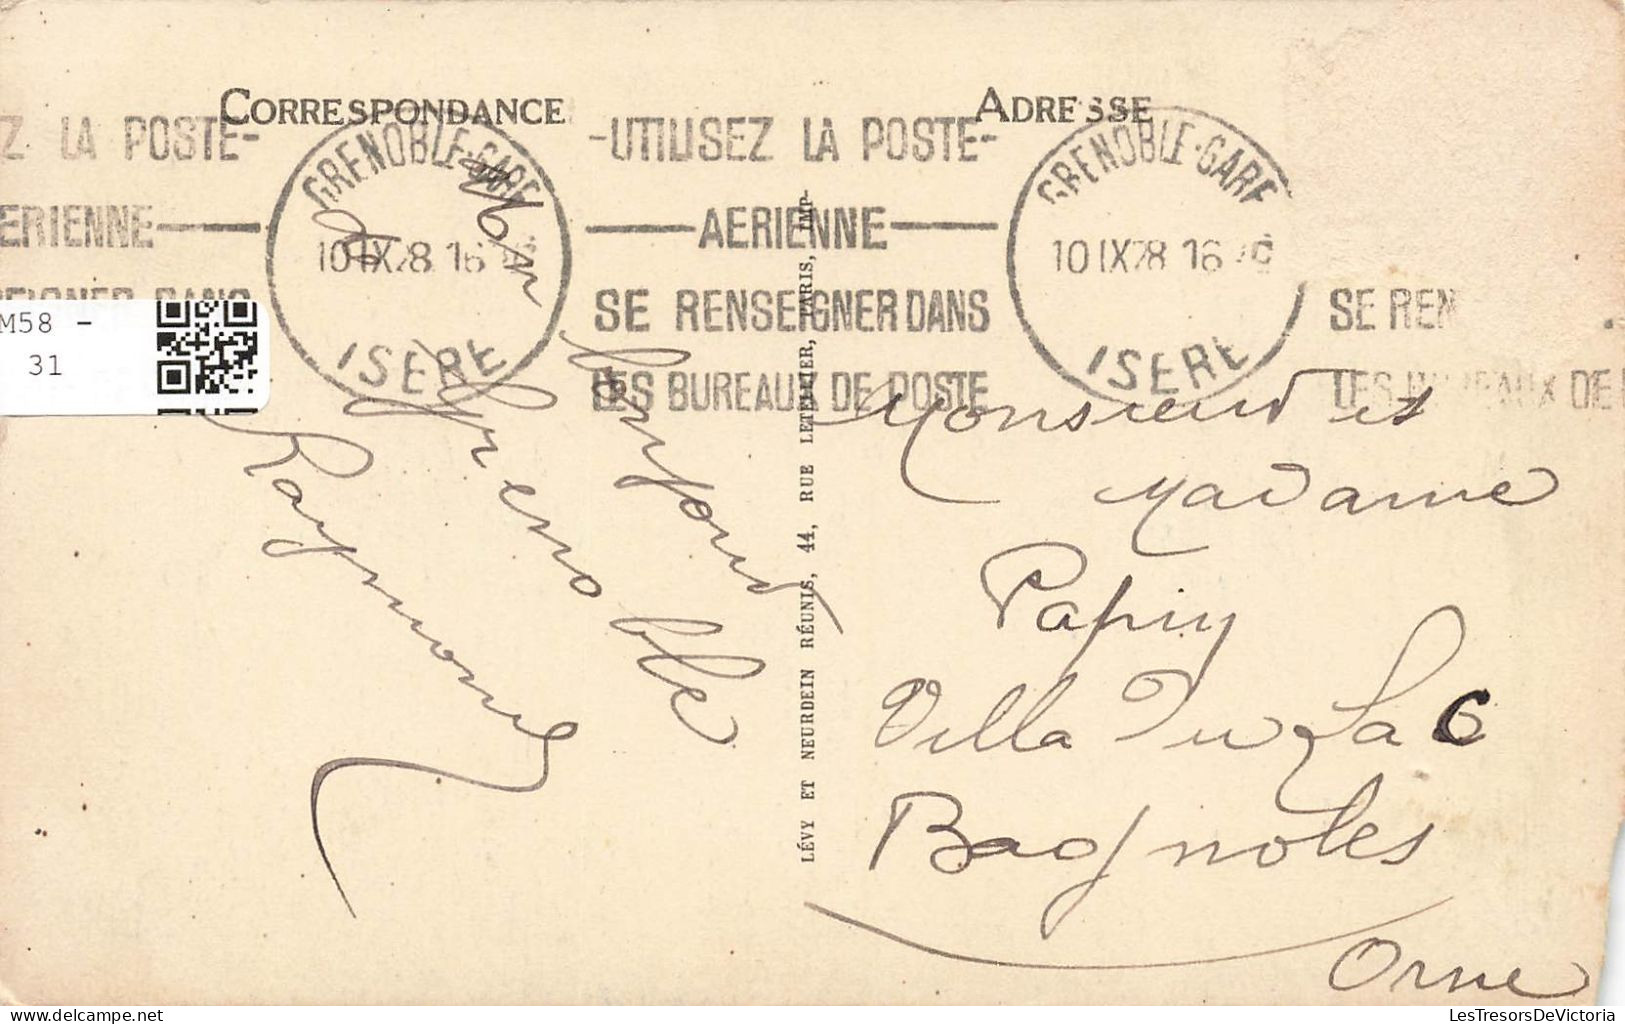 CORRESPONDANCE
ADRESSE
Z LA POSTE-
ERIENNE
GRENOBLE-GARE
10 IX 28 16
ISÈRE
-UTILISEZ LA POSTE-
AERIENNE
SE RENSEIGNER DANS
LES BUREAUX DE POSTE
GRENOBLE-GARE
10 IX 28 16
ISÈRE
SE REN
M58 -
31
Grenoble
Raymond
LÉVY ET NEURDEIN RÉUNIS, 44, RUE LETELLIER, PARIS, IMP-
Monsieur et
Madame
Papin
Villa Du Lac
Bagnoles
Orne
LesTresorsDeVictoria.com